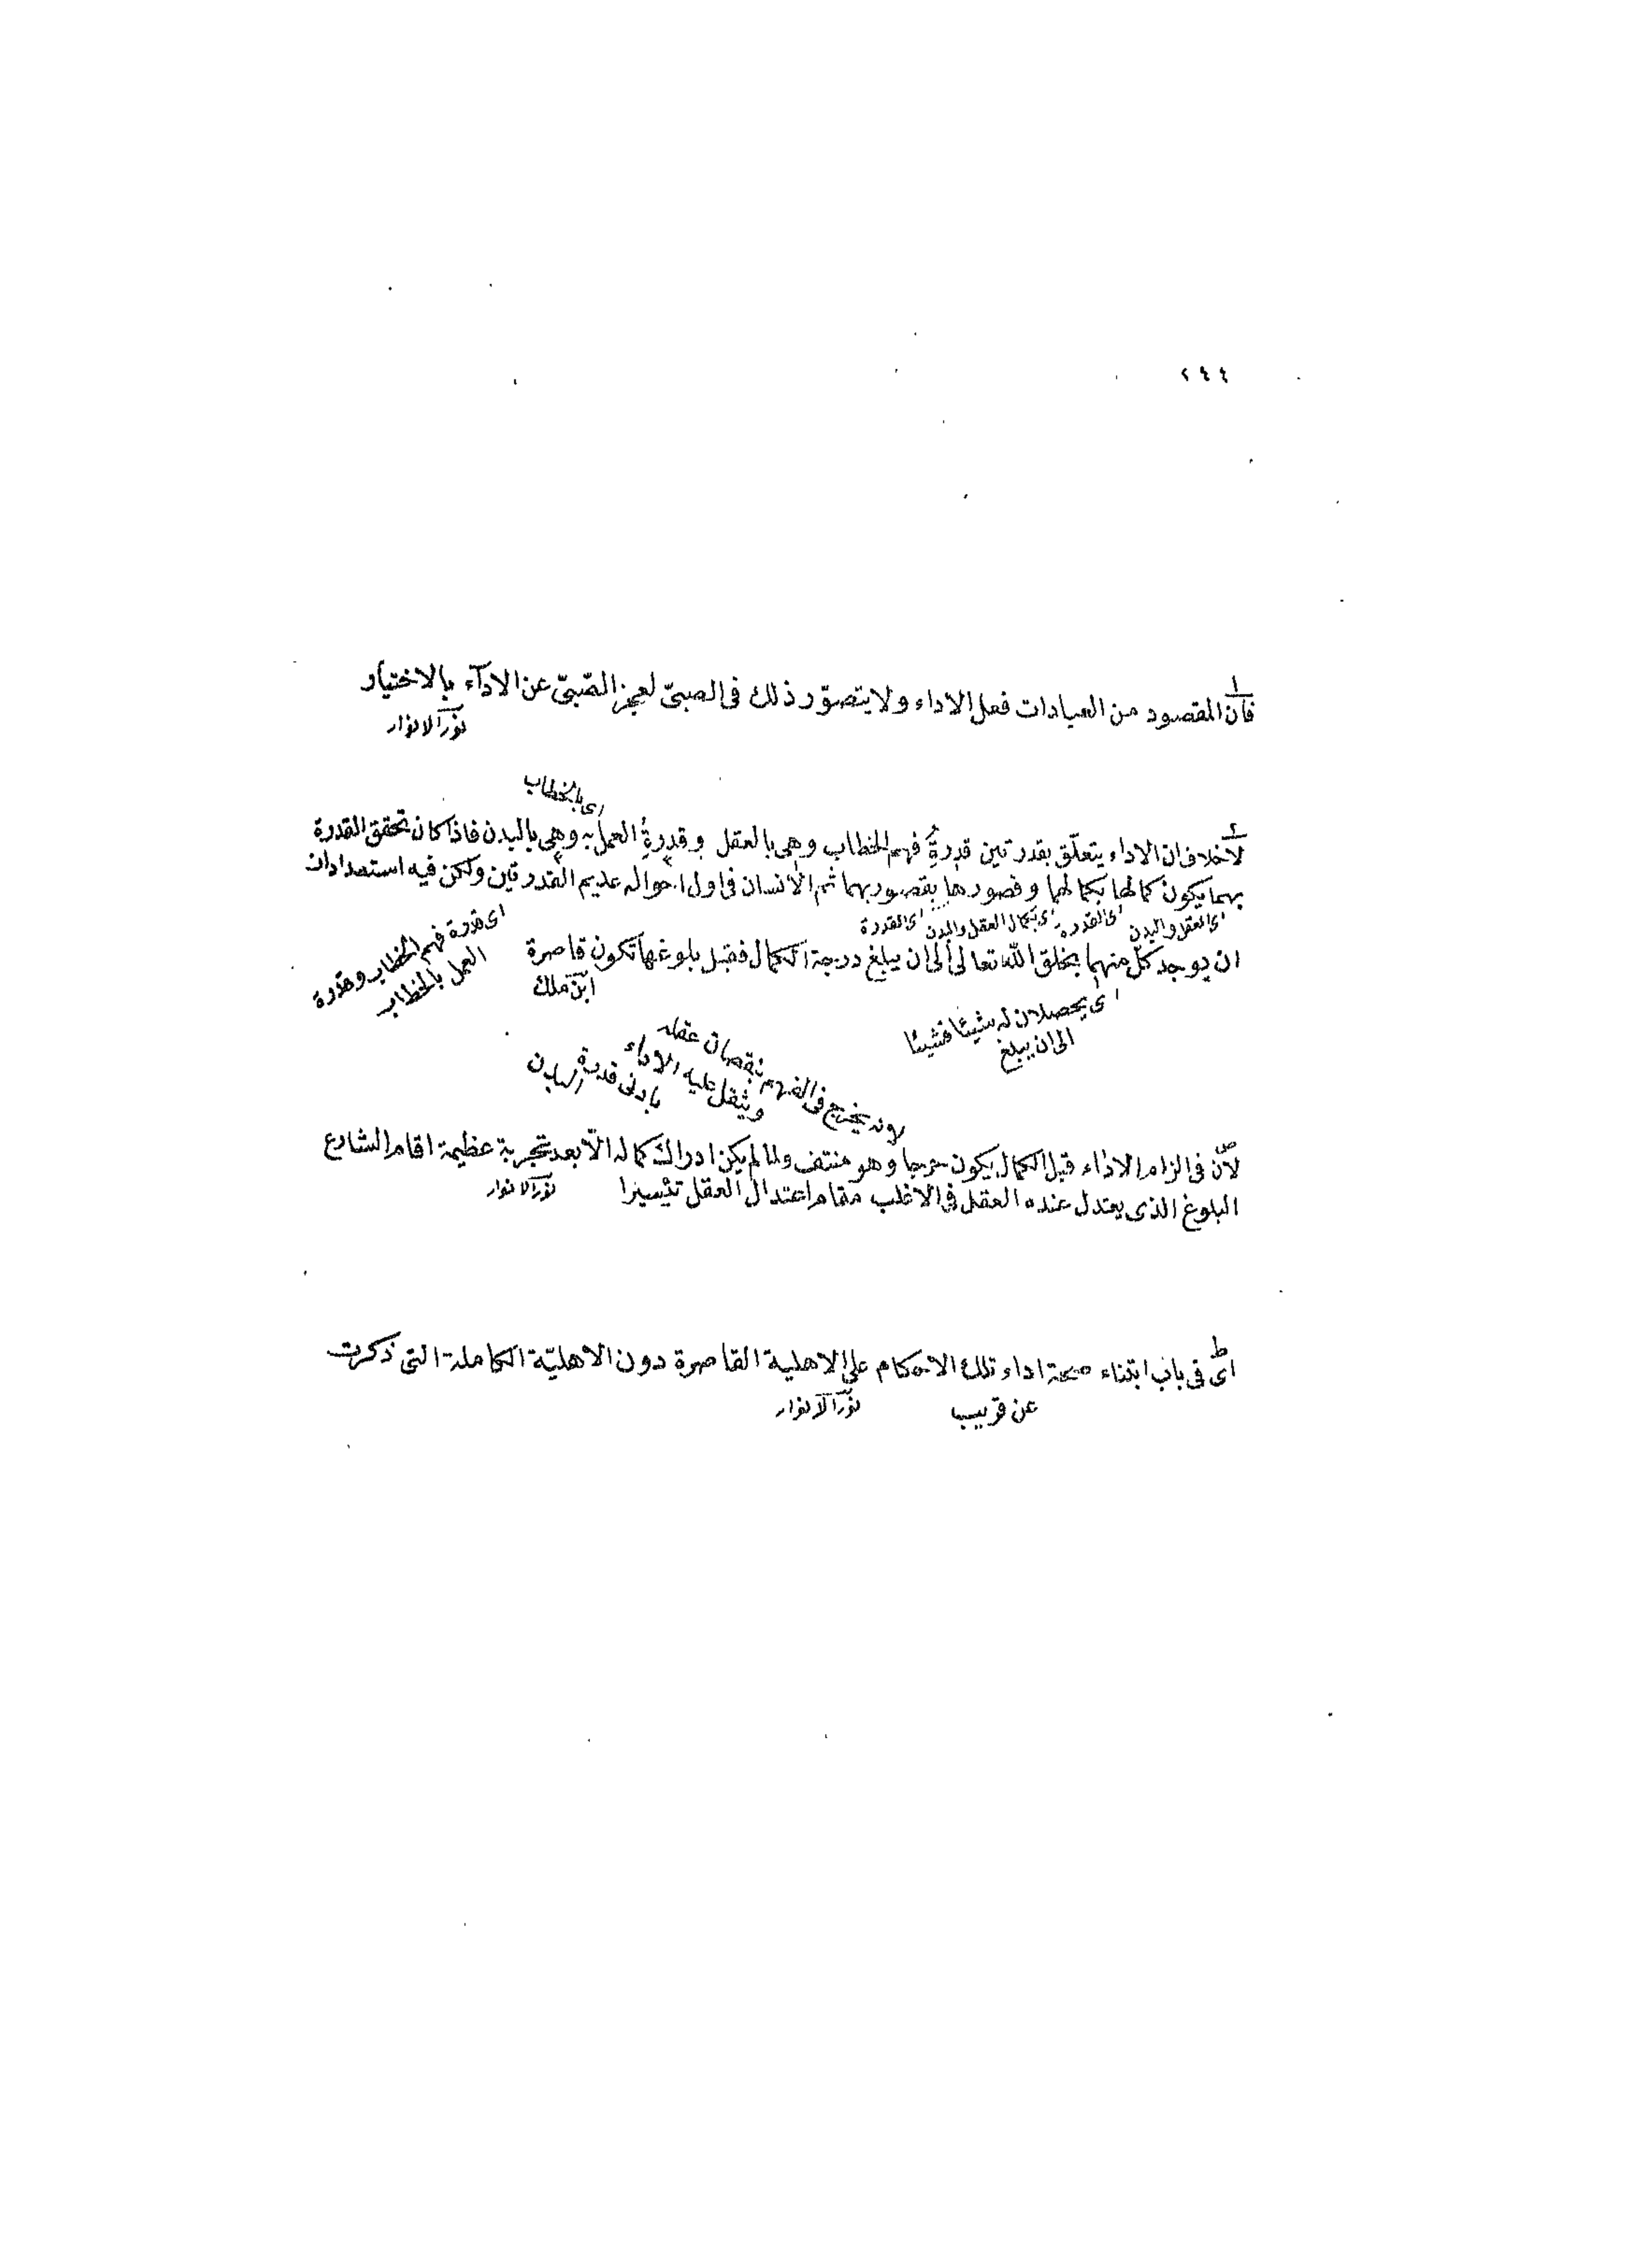 ٢٤٤
١
فان المقصود من العبادات فعل الاداء ولا يتصوّر ذلك فى الصبىّ لعجز الصّبىّ عن الادآء بالاختيار
نور الانوار
اى بالخطاب
٢
لاخلاف ان الاداء يتعلّق بقدرتين قدرةِ فهم الخطاب وهى بالعقل وقدرةِ العمل به وهى بالبدن فاذا كان تحقق القدرة
بهما يكون كمالها بكمالهما وقصورها بقصوريهما ثم الانسان فى اول احواله عديم القدرتين ولكن فيه استعدادان
اى العقل والبدن اى القدرة اى بكمال العقل والبدن اى القدرة
اى قدرة فهم الخطاب وقدرة
العمل بالخطاب
ان يوجد كل منهما بخلق الله تعالى الى ان يبلغ درجة الكمال فقبل بلوغها تكون قاصرة
ابن ملك
اى يحصلان له شيئا فشيئا
الى ان يبلغ
لانه يخرج فى الفهم بنقصان عقله
ويثقل عليه الاداء
بادنى قدرة البدن
ص
لانّ فى الزام الاداء قبل الكمال يكون حرجا وهو منتف ولما لم يكن ادراك كماله الاّ بعد تجربة عظيمة اقام الشارع
البلوغ الذى يعتدل عنده العقل فى الاغلب مقام اعتدال العقل تيسيرا
نور الانوار
ط
اى فى باب ابتناء صحة اداء تلك الاحكام على الاهلية القاصرة دون الاهليّة الكاملة التى ذكرت
عن قريب
نور الانوار